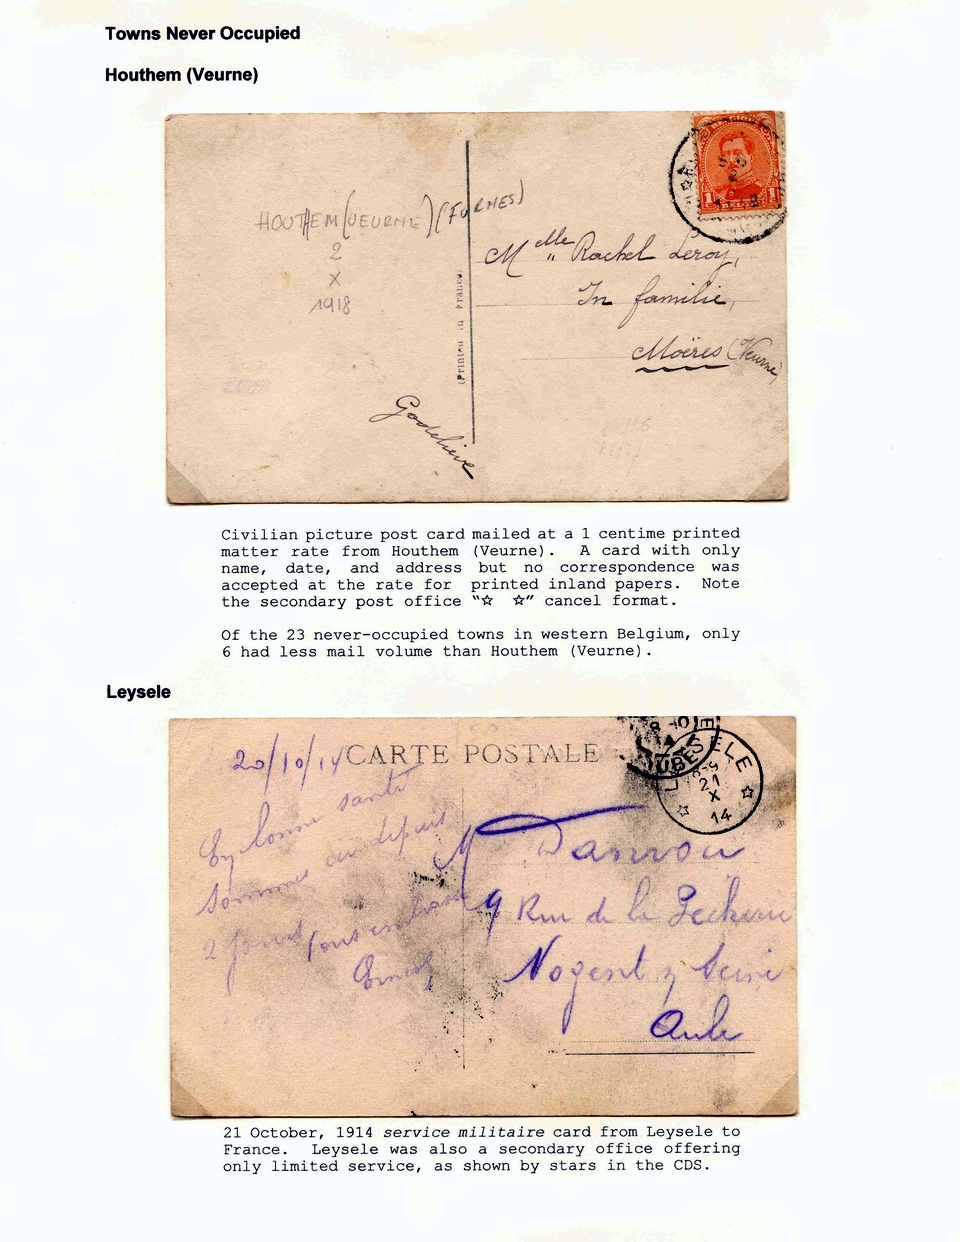 Towns Never Occupied
Houthem (Veurne)
HOUTHEM (VEURNE) (FURNES)
2
X
1918
(Printed in France)
Melle Rachel Leroy,
In familie,
Moëres (Veurne)
Godelieve
1 1
Civilian picture post card mailed at a 1 centime printed
matter rate from Houthem (Veurne). A card with only
name, date, and address but no correspondence was
accepted at the rate for printed inland papers. Note
the secondary post office "☆ ☆" cancel format.
Of the 23 never-occupied towns in western Belgium, only
6 had less mail volume than Houthem (Veurne).
Leysele
CARTE POSTALE
20/10/14
LEYSELE
21
X
14
bonne santé
sommes depuis
2 jours
Ernest
M Danrou
9 Rue de la
Nogent s/ Seine
Aube
21 October, 1914 service militaire card from Leysele to
France. Leysele was also a secondary office offering
only limited service, as shown by stars in the CDS.